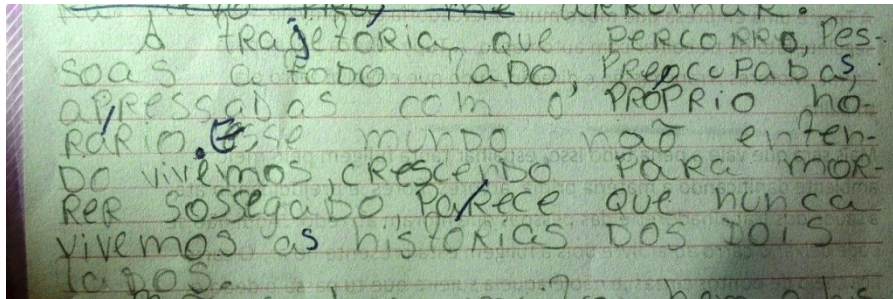 me arrumar.
A trajetória que percorro, pes-
soas a todo lado, preocupadas,
apressadas com o próprio ho-
rário. Esse mundo não enten-
do vivemos, crescendo para mor-
rer sossegado, parece que nunca
vivemos as histórias dos dois
lados.